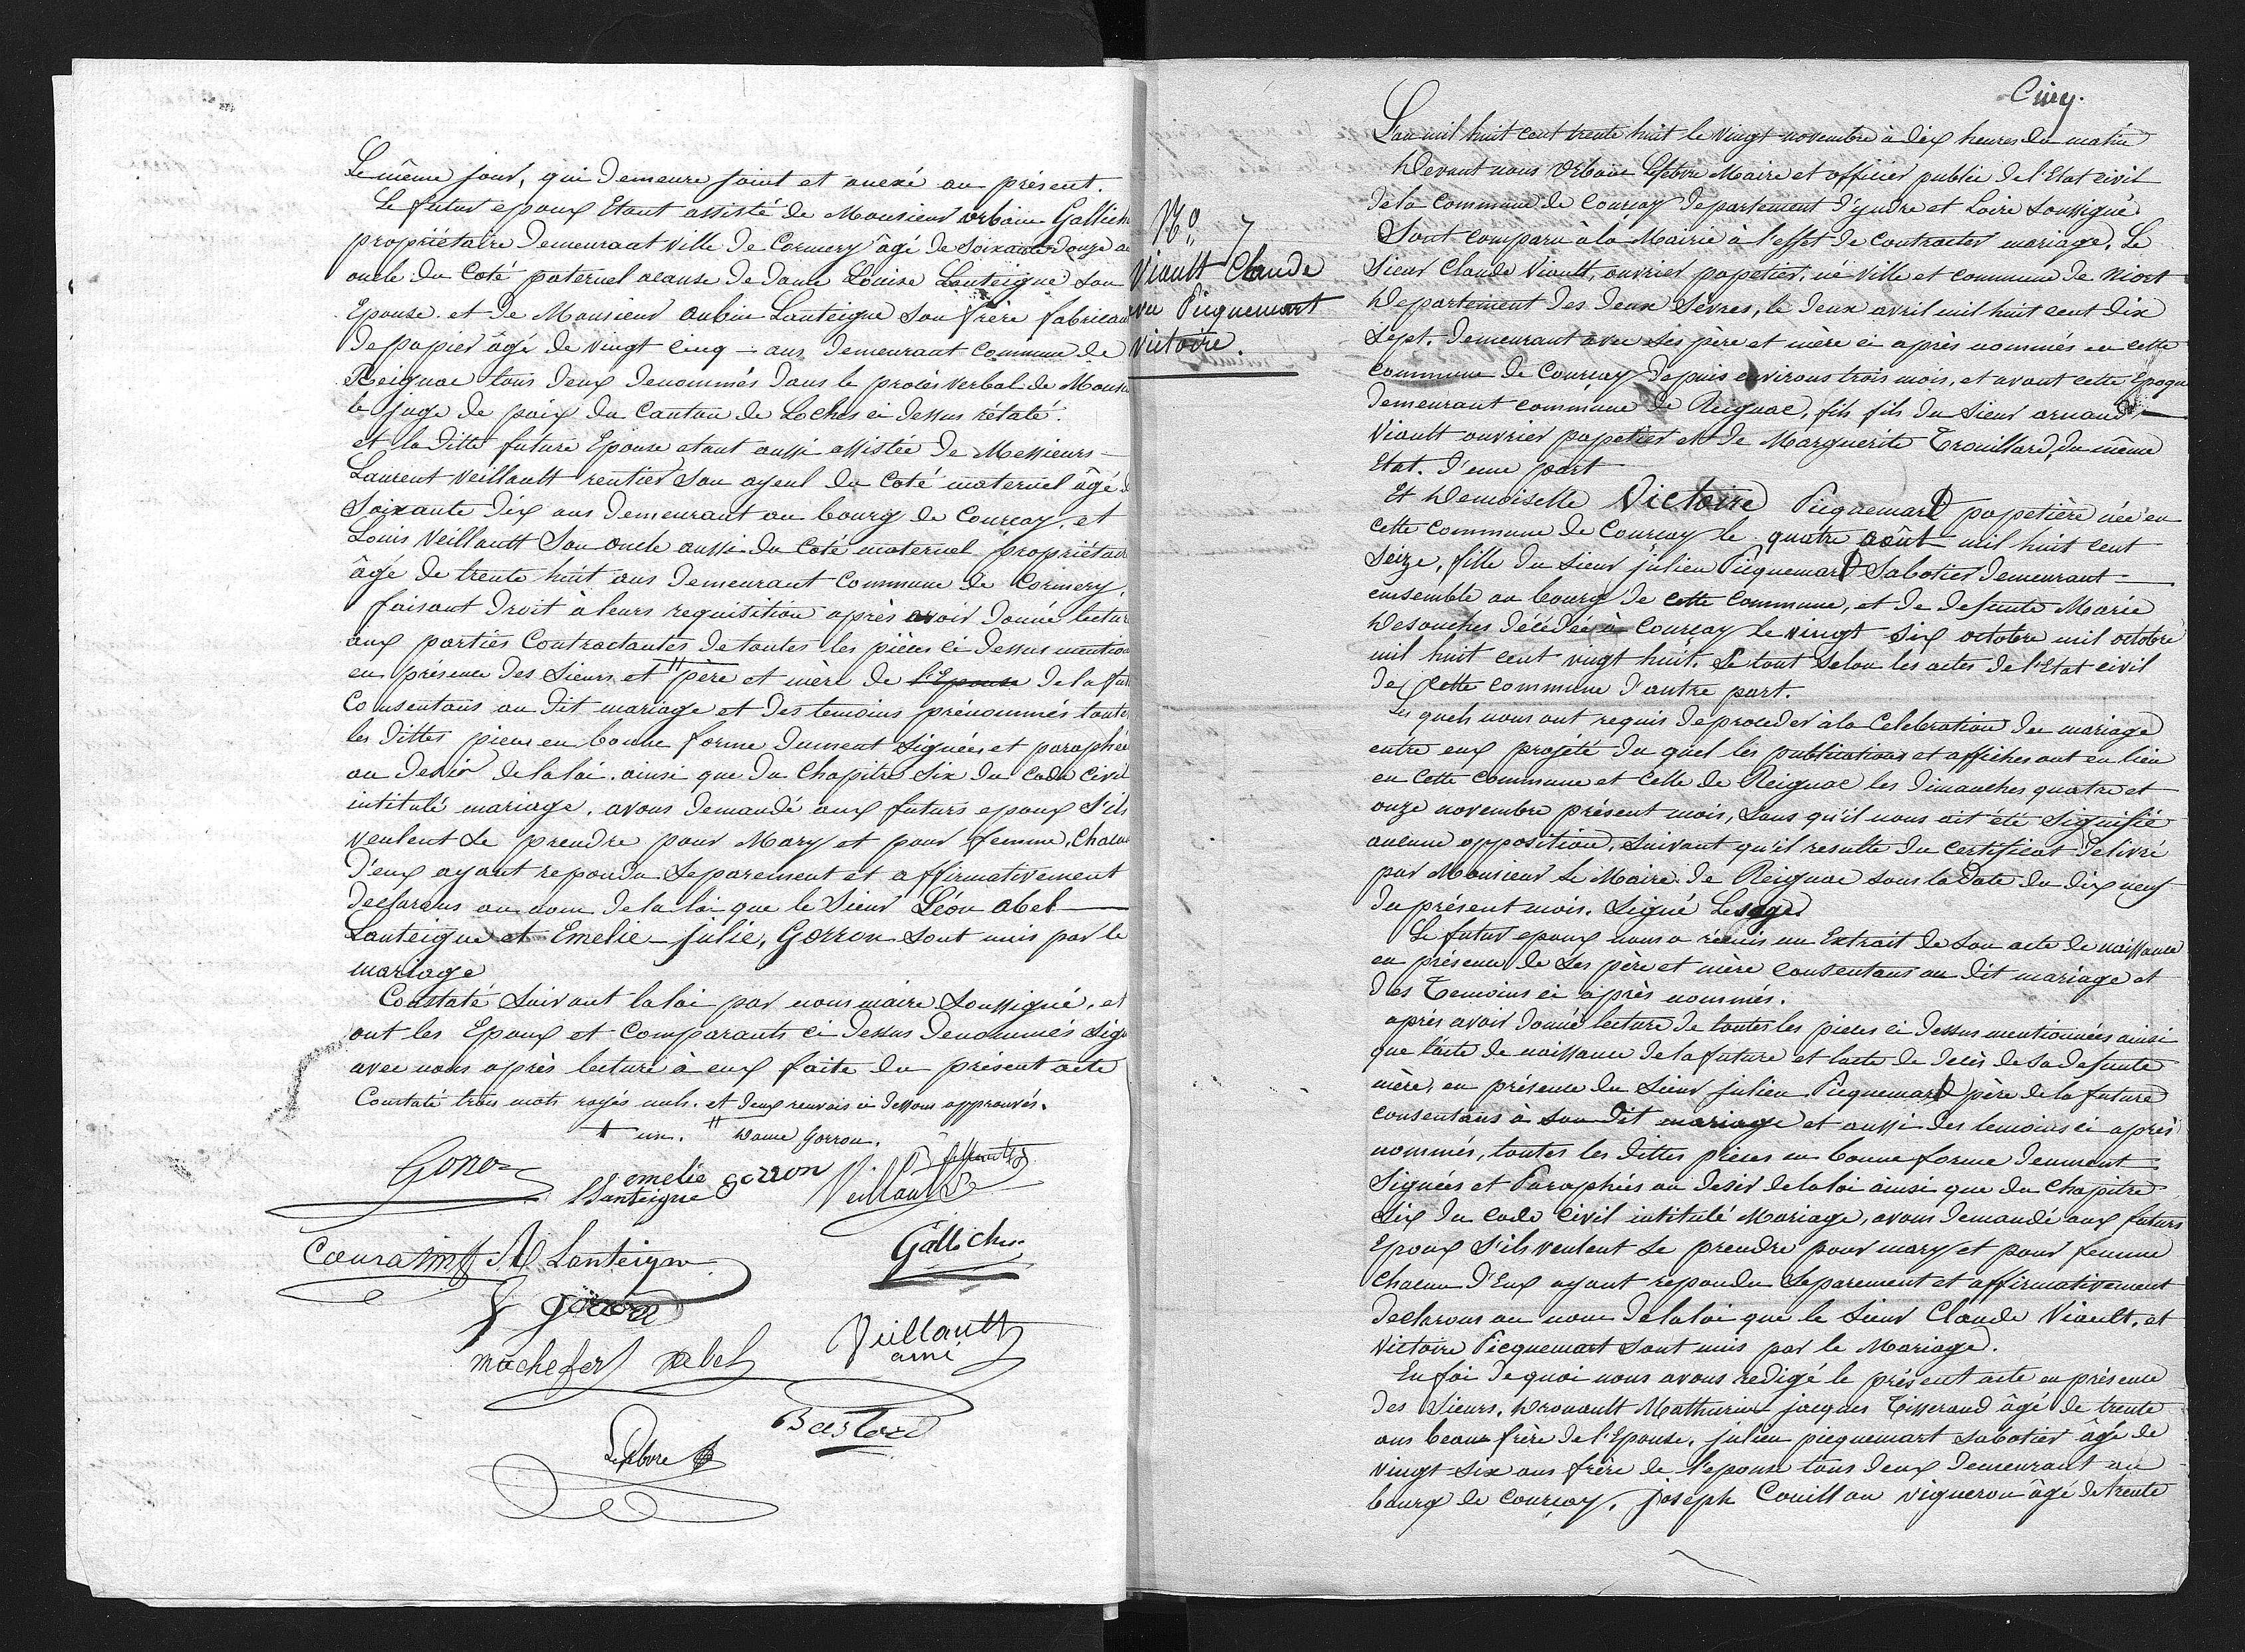 Le même jour, qui demeure joint et anexé au présent.
Le futur epoux Etant assisté de Monsieur urbain Gallich
propriétaire demeurant ville de Cormery âgé de Soixante douze a
oncle du Coté paternel acause de dame Louise Lanteigne son
Epouse. et de Monsieur aubin Lanteigne son frère fabrican
de papier âgé de vingt cinq ans demeurant Commune de
Reignac tous deux denommés dans le procès verbal de Mons
le juge de paix du Canton de Loches ci dessus rétaté.
et la ditte future Epouse etant aussi assistée de Messieurs
Laurent Veillault rentier son ayeul du Coté maternel âgé d
Soixante dix ans demeurant au bourg de Courcay, et
Louis Veillault Son oncle aussi du Coté maternel propriétair
âgé de trente huit ans demeurant Commune de Cormery,
faisant droit à leurs requisition après avoir donné lectur
aux parties Contractantes de toutes les pièces ci dessus mention
en présence des Sieurs et # père et mère de l'Epouse de la fut
Consentans au dit mariage et des temoins prénommés toutes
les dittes pieces en bonne forme dument signées et paraphée
au desir de la loi. ainsi que du Chapitre Six du Code Civil
intitulé mariage, avons demandé aux futurs epoux S'ils
veulent se prendre pour Mary et pour femme, Chacun
d'eux ayant repondu Separement et affirmativement
declarons au nom de la loi que le Sieur Léon abel
Lanteigne et Emelie julie, Gorron sont unis par le
mariage
Constaté Suivant la loi par nous maire Soussigné, et
ont les Epoux et Comparants ci dessus denommés sign
avec nous après lecture à eux faite du présent acte
Constaté trois mots rayés nuls. et deux renvois ci dessous approuvés.
un. # dame Gorron.
emelie gorron
Lanteigne
Veillault
Gallicher
Lanteigne
machefer abel
Veillault
ainé
Bastard
Lefebvre
Cinq.
L'an mil huit cent trente huit le vingt novembre à dix heures du matin
Devant nous Urbain Lefebvre Maire et officier public de l'Etat civil
de la Commune de Courçay Departement d'yndre et Loire Soussigné
Sont comparu à la Mairie à l'effet de contracter mariage, Le
No. 7
Viault Claude
avec Picquemart
Victoire.
Sieur Claude Viault, ouvrier papetier, né ville et commune de Niort
Departement des Deux Sèvres, le deux avril mil huit cent dix
Sept. demeurant avec ses père et mère ci après nommés en cette
commune de Courçay depuis environs trois mois, et avant cette Epoque
demeurant commune de Reignac, fils fils du Sieur arnaud
Viault ouvrier papetier et de Marguerite Trouillard, du même
Etat. d'une part
Et Demoiselle Victoire Picquemart papetière née en
cette Commune de Courçay le quatre août mil huit cent
Seize, fille du Sieur julien Picquemart Sabotier demeurant
ensemble au bourg de cette Commune, et de defunte Marie
Desouches décédée à Courçay le vingt six octobre mil octobre
mil huit cent vingt huit, Le tout selon les actes de l'Etat civil
de cette commune d'autre part.
Les quels nous ont requis de proceder à la Celebration du mariage
entre eux projété du quel les publications et affiches ont eu lieu
en Cette Commune et Celle de Reignac les dimanches quatre et
onze novembre présent mois, Sans qu'il nous ait été signifié
aucune opposition, suivant qu'il resulte du certificat délivré
par Monsieur Le Maire de Reignac sous la date du dix neuf
du présent mois. Signé Lesage
Le futur epoux nous a remis un Extrait de son acte de naissance
en présence de ses père et mère consentans au dit mariage et
des Temoins ci après nommés.
après avoir donné lecture de toutes les pièces ci dessus mentionnées ainsi
que l'acte de naissance de la future et lacte de décès de sa defunte
mère, en présence du Sieur julien Picquemart père de la future
consentans à son dit mariage et aussi des temoins ci après
nommés, toutes les dittes pièces en bonne forme deument
Signées et Paraphées au desir de la loi ainsi que du Chapitre
Six du Code Civil intitulé Mariage, avons demandé aux futurs
Epoux S'ils veulent se prendre pour mary et pour femme
Chacun d'Eux ayant repondu Separement et affirmativement
declarons au nom de la loi que le Sieur Claude Viault, et
Victoire Picquemart sont unis par le Mariage.
En foi de quoi nous avons redigé le présent acte en présence
des Sieurs, Drouault Mathurin jacques Tisserand âgé de trente
ans beau frère de l'Epouse, julien picquemart sabotier âgé de
vingt six ans frère de l'epouse tous deux demeurant au
bourg de Courçay, Joseph Couillau vigneron âgé de trente